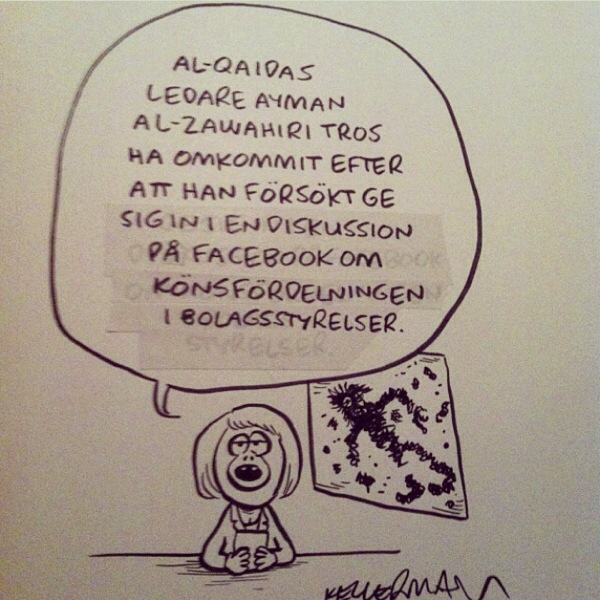 AL-QAIDAS
LEDARE AYMAN
AL-ZAWAHIRI TROS
HA OMKOMMIT EFTER
ATT HAN FÖRSÖKT GE
SIG IN I EN DISKUSSION
PÅ FACEBOOK OM
KÖNSFÖRDELNINGEN
I BOLAGSSTYRELSER.
STYRELSER.
KELLERMAN